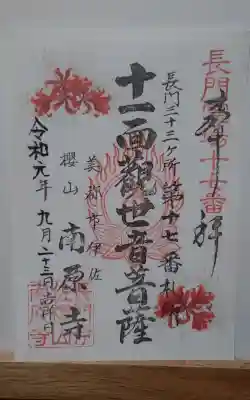 長門第十七番
奉拝
長門三十三ヶ所第十七番札所
十一面觀世音菩薩
美祢市伊佐
櫻山 南原寺
令和元年九月二十三日